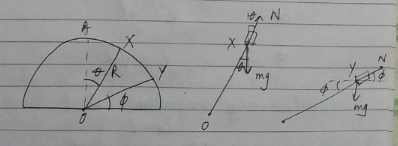 A
X
θ
R
Y
O
φ
θ
N
X
θ
mg
O
N
Y
φ
φ
mg